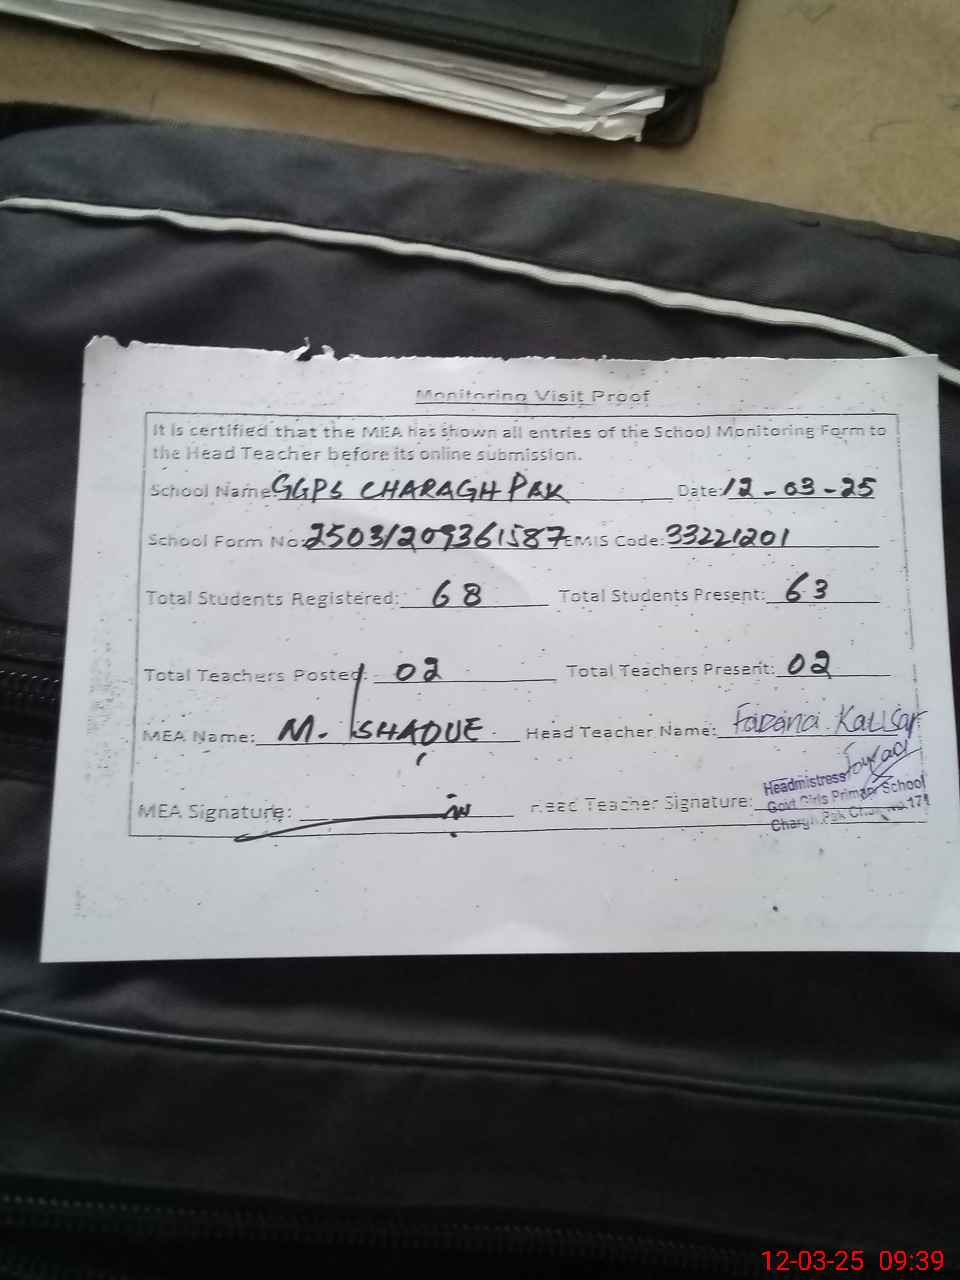 Monitoring Visit Proof
It is certified that the MEA has shown all entries of the School Monitoring Form to
the Head Teacher before its online submission.
School Name: GGPS CHARAGH PAK Date: 12-03-25
School Form No: 25031209361587 EMIS Code: 33221201
Total Students Registered: 68 Total Students Present: 63
Total Teachers Posted: 02 Total Teachers Present: 02
MEA Name: M. Head Teacher Name: Kausar
MEA Signature: Head Teacher Signature:
Headmistress
Govt Girls Primary School
12-03-25 09:39